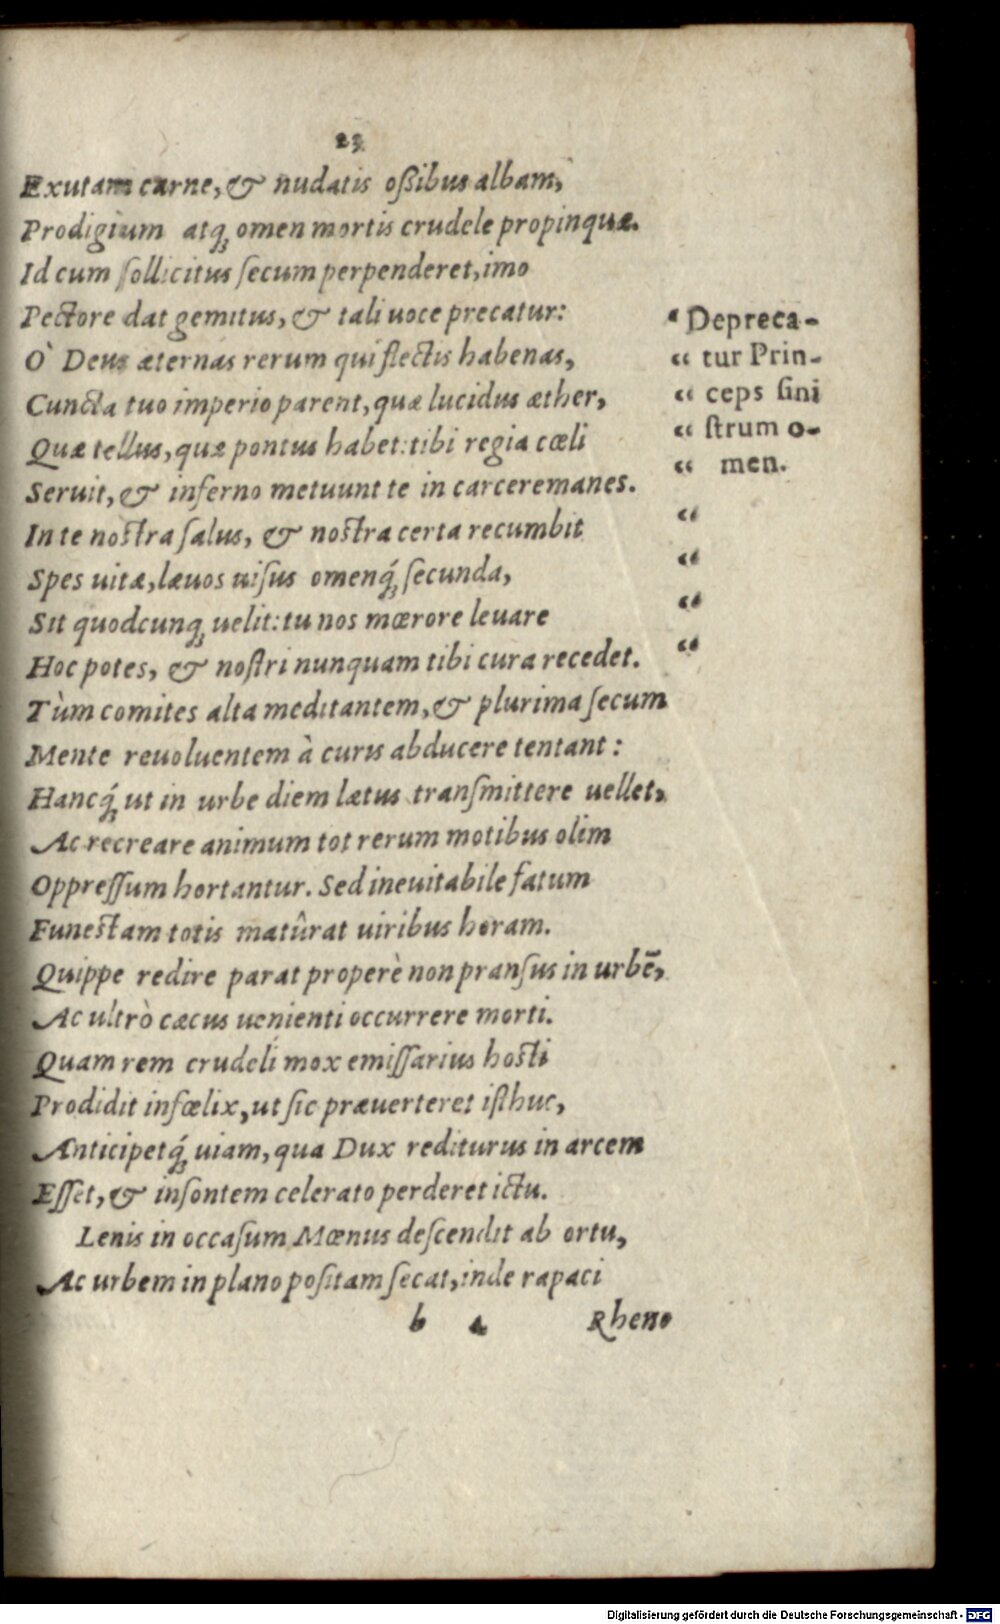 23
Exutam carne, & nudatis oßibus albam,
Prodigium atq́; omen mortis crudele propinquæ.
Id cum ſollicitus ſecum perpenderet, imo
Pectore dat gemitus, & tali uoce precatur:
O` Deus æternas rerum qui flectis habenas,
Cuncta tuo imperio parent, quæ lucidus æther,
Quæ tellus, quæ pontus habet: tibi regia cœli
Seruit, & inferno metuunt te in carcere manes.
In te noſtra ſalus, & noſtra certa recumbit
Spes uitæ, læuos uiſus omenq́; ſecunda,
Sit quodcunq; uelit: tu nos mœrore leuare
Hoc potes, & noſtri nunquam tibi cura recedet.
Tùm comites alta meditantem, & plurima ſecum
Mente reuoluentem à curis abducere tentant:
Hancq́; ut in urbe diem lætus tranſmittere uellet,
Ac recreare animum tot rerum motibus olim
Oppreſſum hortantur. Sed ineuitabile fatum
Funeſtam totis matûrat uiribus horam.
Quippe redire parat properè non pranſus in urbē,
Ac ultrò cæcus uenienti occurrere morti.
Quam rem crudeli mox emiſſarius hoſti
Prodidit infœlix, ut ſic præuerteret iſthuc,
Anticipetq́; uiam, qua Dux rediturus in arcem
Eſſet, & inſontem celerato perderet ictu.
Lenis in occaſum Mœnus deſcendit ab ortu,
Ac urbem in plano poſitam ſecat, inde rapaci
b 4 Rheno
“ Depreca-
“ tur Prin-
“ ceps ſini
“ ſtrum o-
“ men.
“
“
“
“
Digitalisierung gefördert durch die Deutsche Forschungsgemeinschaft - DFG